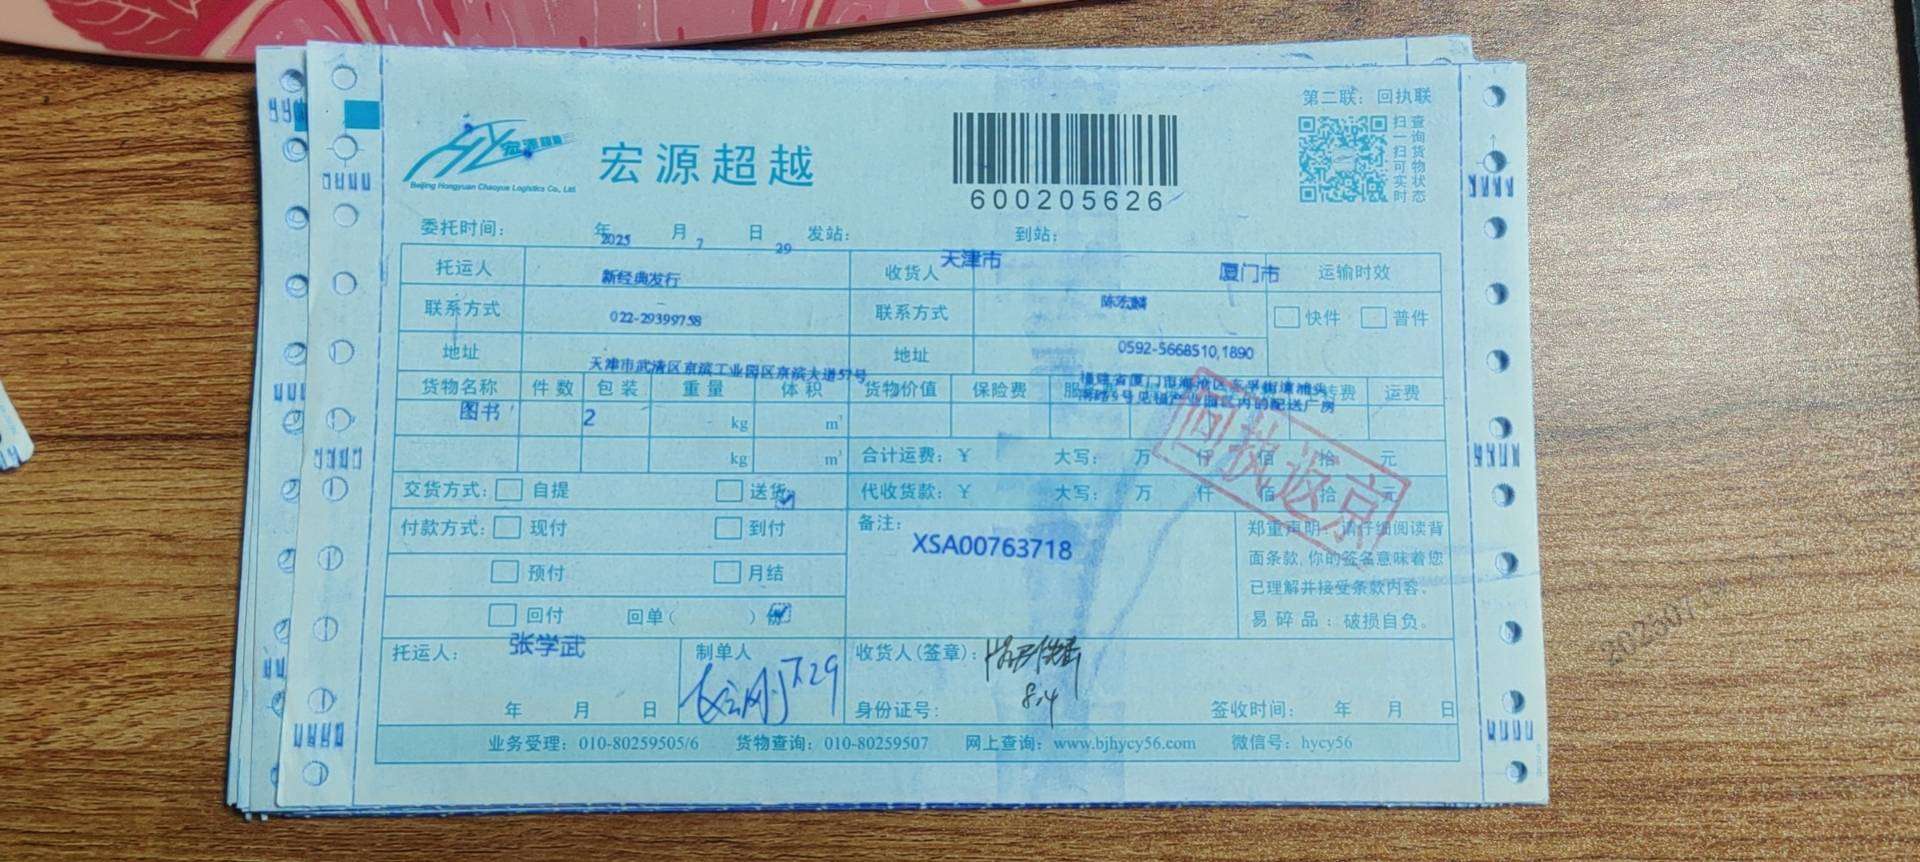 第二联：回执联
宏源超越
Beijing Hongyuan Chaoyue Logistics Co., Ltd.
宏源超越
600205626
扫一扫可实时
查询货物状态
委托时间： 年 月 日 发站： 到站：
2025 7 29
天津市 厦门市
托运人 新经典发行 收货人 运输时效
联系方式 022-29399758 联系方式 陈宏麟 快件 普件
地址 天津市武清区京滨工业园区京滨大道57号 地址 0592-5668510,1890
货物名称 件数 包装 重量 体积 货物价值 保险费 运费
图书 2 kg m³
kg m³ 合计运费：￥ 大写： 万 仟 佰 拾 元
回执返京
交货方式： 自提 送货 代收货款：￥ 大写： 万 仟 佰 拾 元
付款方式： 现付 到付 备注：
XSA00763718
预付 月结
回付 回单（ ）份
郑重声明：请仔细阅读背
面条款，你的签名意味着您
已理解并接受条款内容。
易碎品：破损自负。
托运人： 张学武 制单人 收货人（签章）：
7.29
8.4
年 月 日 身份证号： 签收时间： 年 月 日
业务受理：010-80259505/6 货物查询：010-80259507 网上查询：www.bjhycy56.com 微信号：hycy56